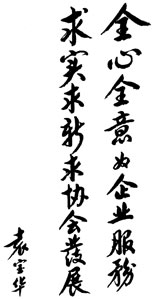 全心全意为企业服务
求实求新求协会發展
袁宝华